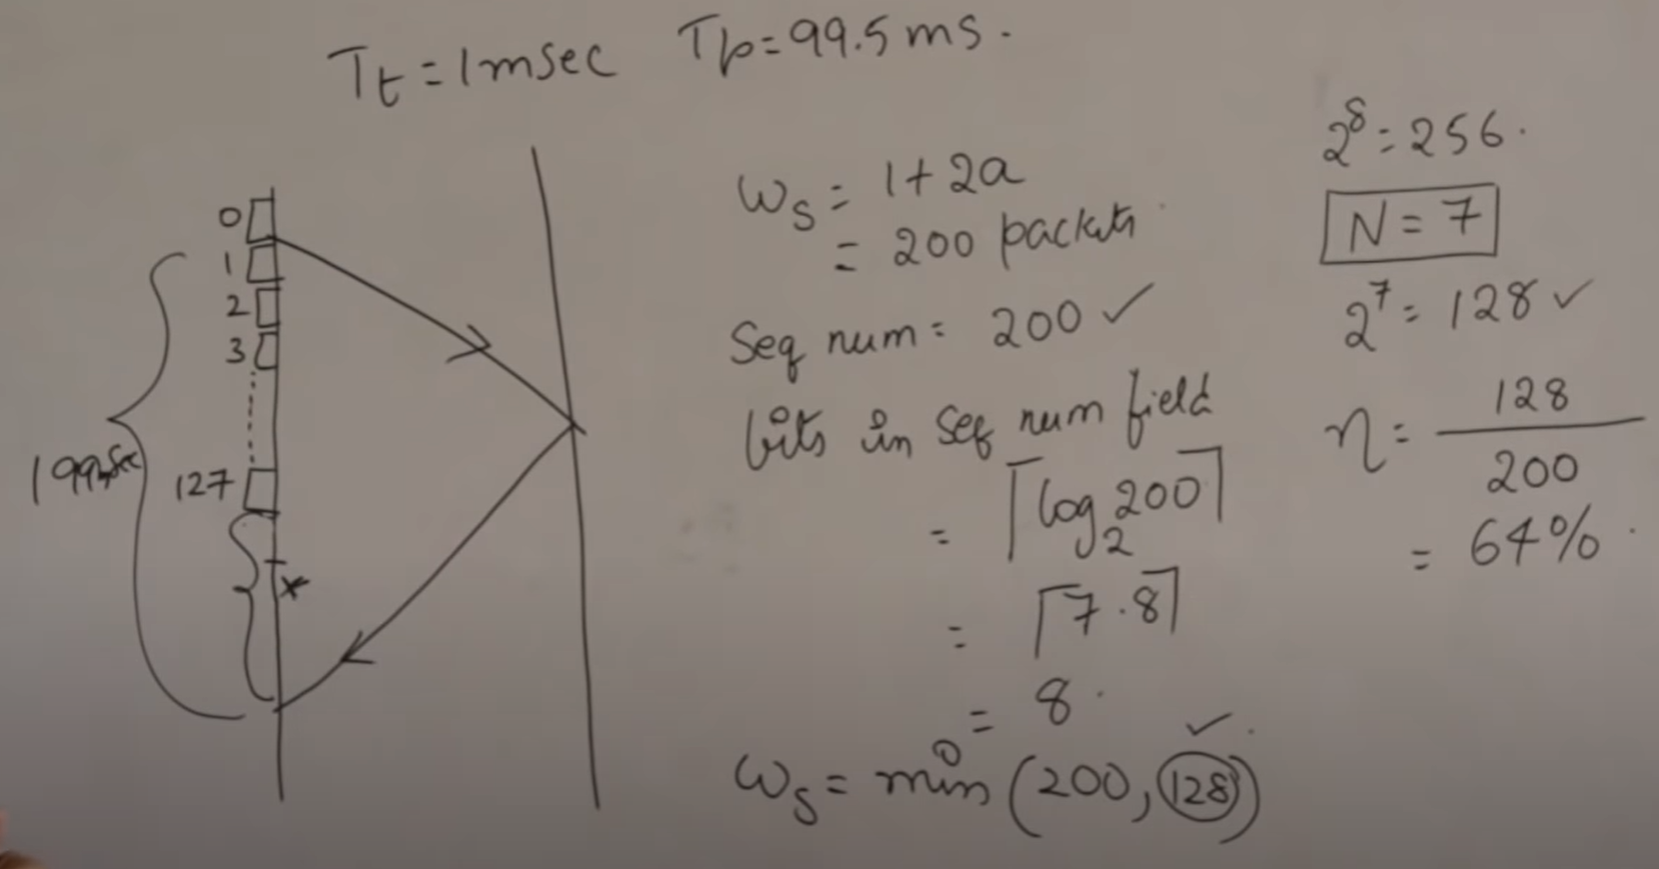 Tt = 1msec Tp = 99.5 ms.
0
1
2
3
127
199
ωs = 1 + 2a
= 200 packets
Seq num = 200 ✓
bits in seq num field
= ⌈log₂200⌉
= ⌈7.8⌉
= 8.
ωs = min (200, 128) ✓
2⁸ = 256.
N = 7
2⁷ = 128 ✓
η = 128/200
= 64%.